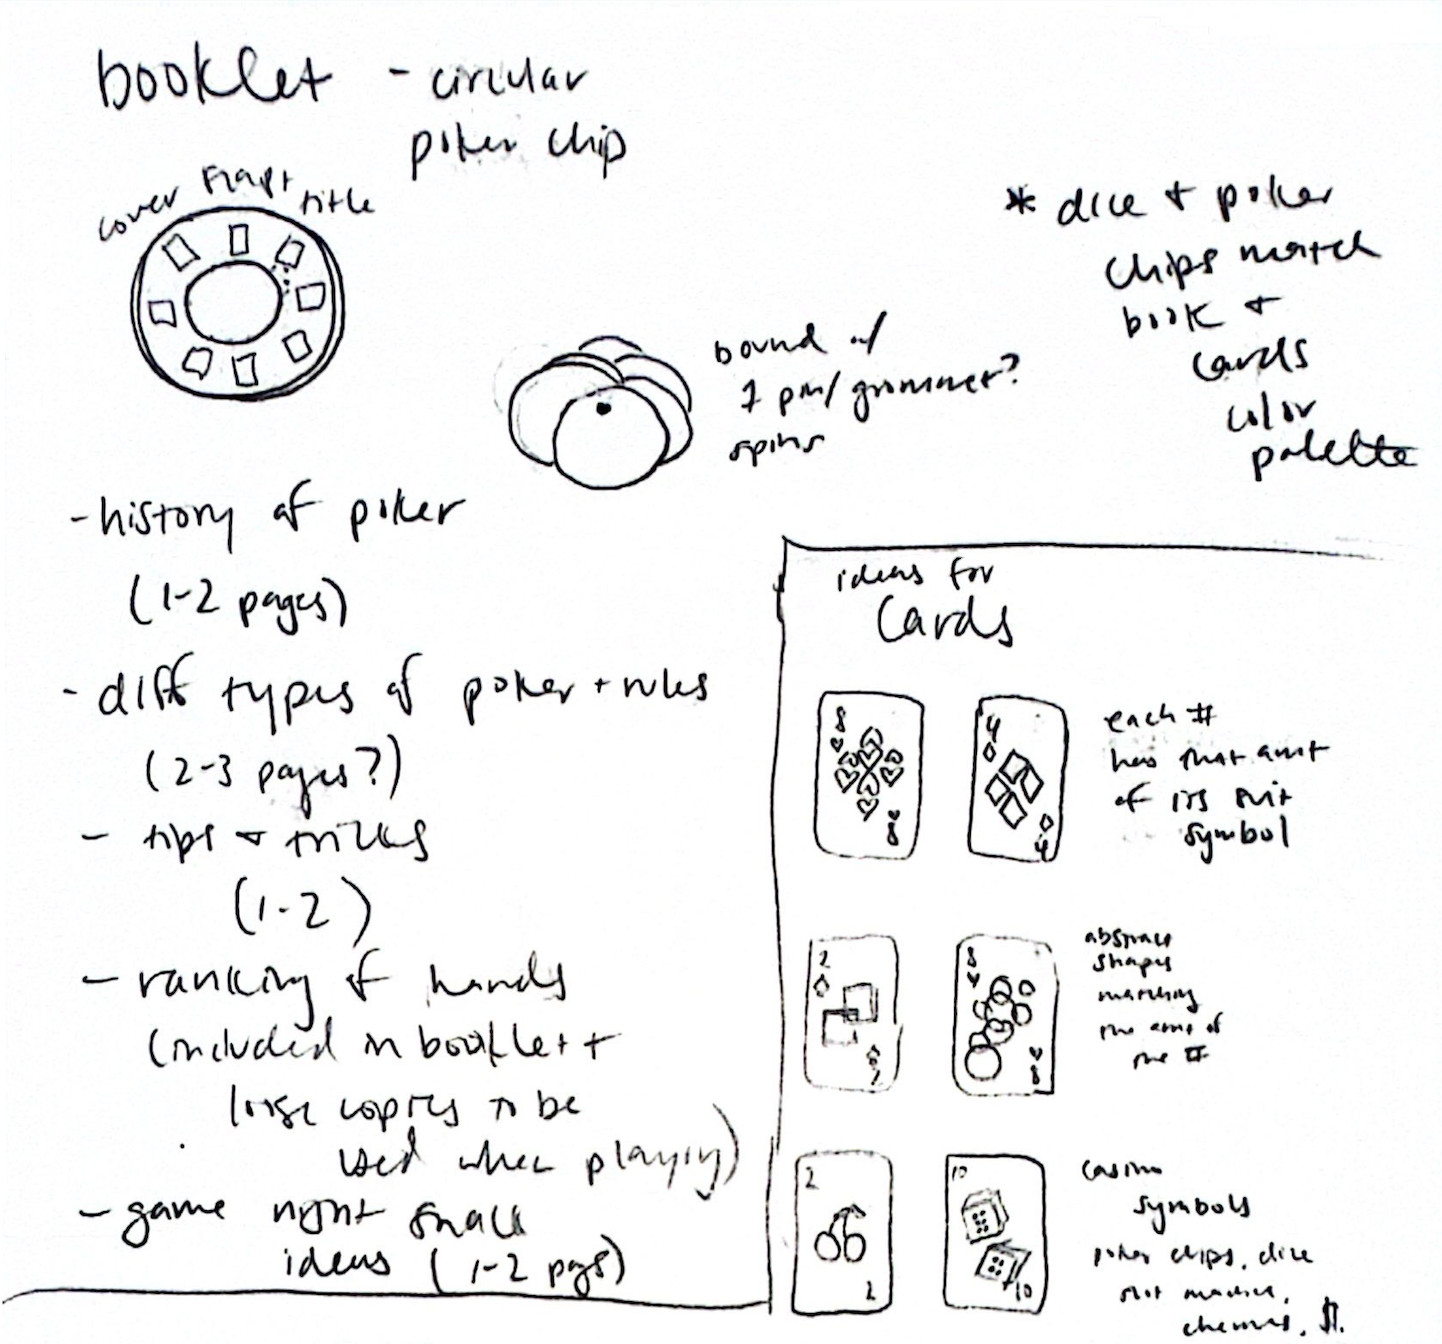 booklet - circular
poker chip
cover front title
* dice + poker
chips match
book +
cards
color
palette
bound w/
1 pin/grommet?
spins
- history of poker
(1-2 pages)
- diff types of poker + rules
(2-3 pages?)
- tips + tricks
(1-2)
- ranking of hands
(included in booklet +
loose copies to be
used when playing)
- game night snack
ideas (1-2 pgs)
ideas for
Cards
8
8
4
4
each #
has that amt
of its suit
symbol
2
2
8
8
abstract
shapes
matching
the amt of
the #
2
2
10
10
casino
symbols
poker chips, dice
slot machine,
cherries, $.